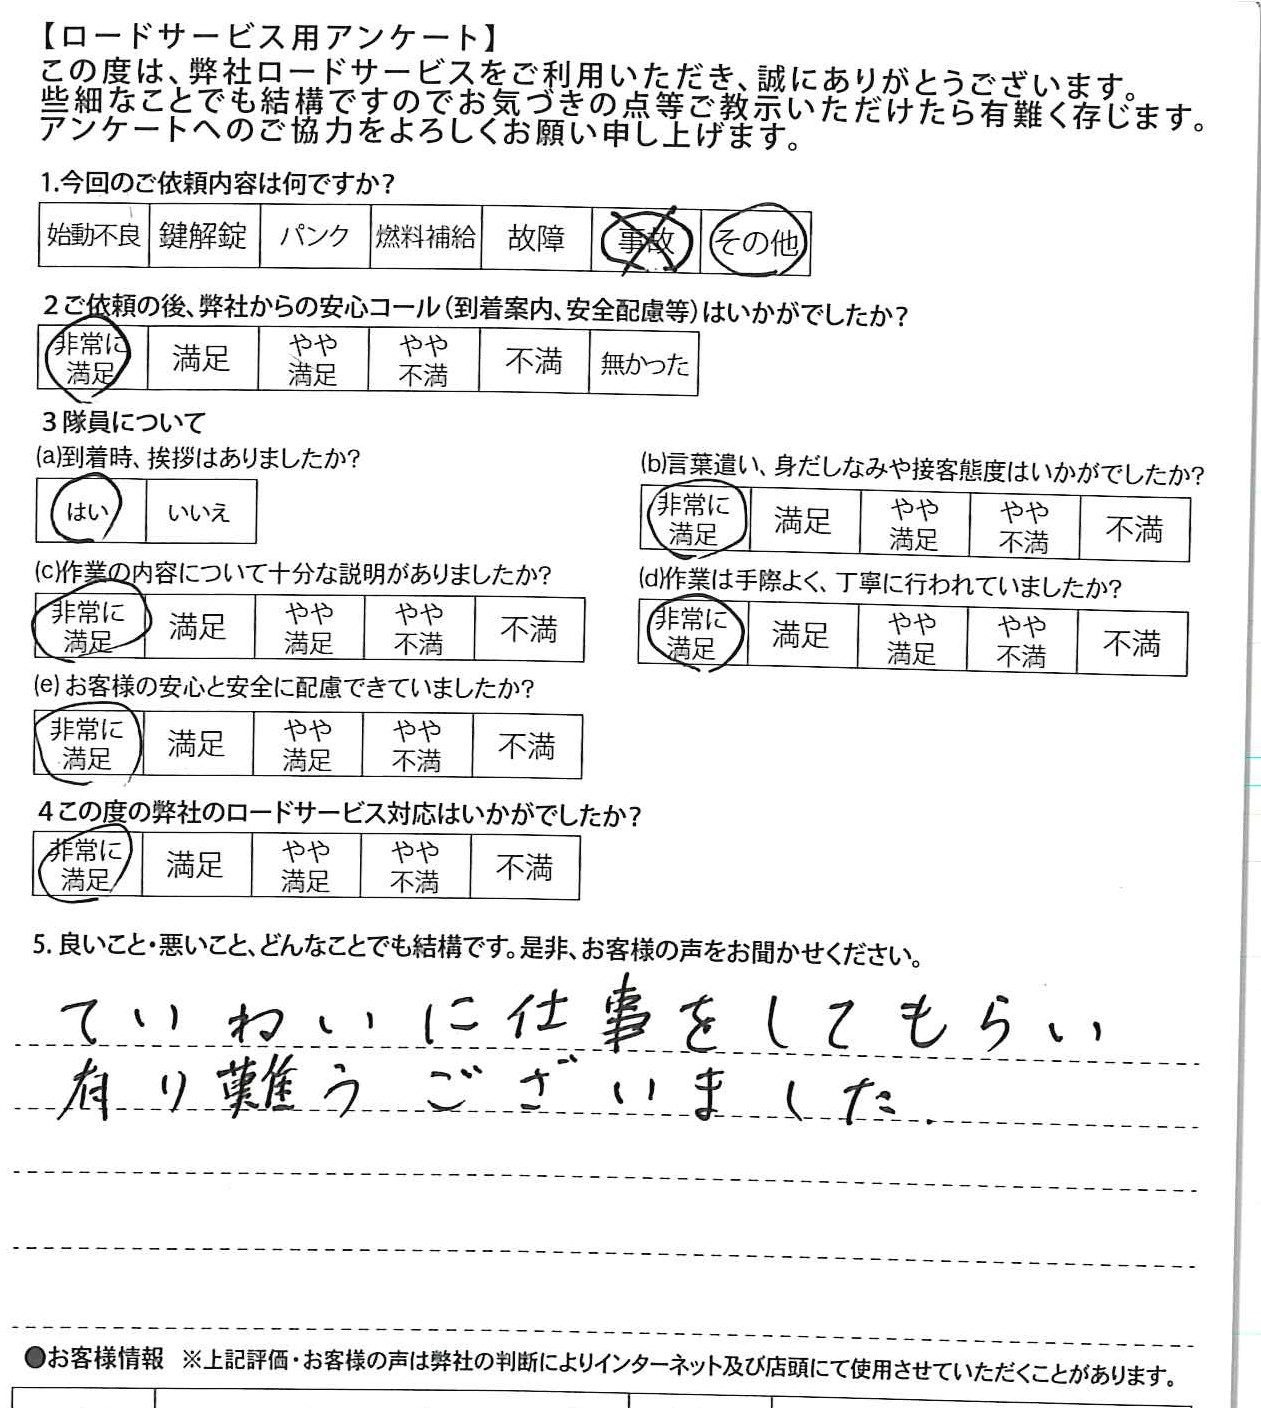 【ロードサービス用アンケート】
この度は、弊社ロードサービスをご利用いただき、誠にありがとうございます。
些細なことでも結構ですのでお気づきの点等ご教示いただけたら有難く存じます。
アンケートへのご協力をよろしくお願い申し上げます。
1.今回のご依頼内容は何ですか?
始動不良 鍵解錠 パンク 燃料補給 故障 事故 その他
2ご依頼の後、弊社からの安心コール(到着案内、安全配慮等)はいかがでしたか?
非常に満足 満足 やや満足 やや不満 不満 無かった
3隊員について
(a)到着時、挨拶はありましたか?
はい いいえ
(b)言葉遣い、身だしなみや接客態度はいかがでしたか?
非常に満足 満足 やや満足 やや不満 不満
(c)作業の内容について十分な説明がありましたか?
非常に満足 満足 やや満足 やや不満 不満
(d)作業は手際よく、丁寧に行われていましたか?
非常に満足 満足 やや満足 やや不満 不満
(e)お客様の安心と安全に配慮できていましたか?
非常に満足 満足 やや満足 やや不満 不満
4この度の弊社のロードサービス対応はいかがでしたか?
非常に満足 満足 やや満足 やや不満 不満
5.良いこと・悪いこと、どんなことでも結構です。是非、お客様の声をお聞かせください。
ていねいに仕事をしてもらい
有り難うございました.
●お客様情報 ※上記評価・お客様の声は弊社の判断によりインターネット及び店頭にて使用させていただくことがあります。